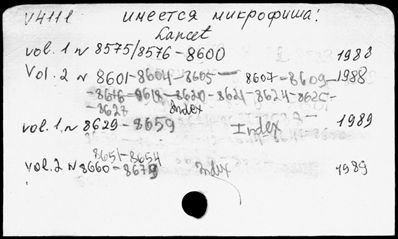 V4111 имеется микрофиша!
Lancet
vol. 1 N 8575/8576-8600 1988
Vol. 2 N 8601-8604-8605- 8607-8609- 1988
-8616-8618-8620-8621-8624-8625-
-8627 Index
vol. 1. N 8629-8659 Index 1989
8651-8654
vol. 2 N 8660-8679 Index 1989